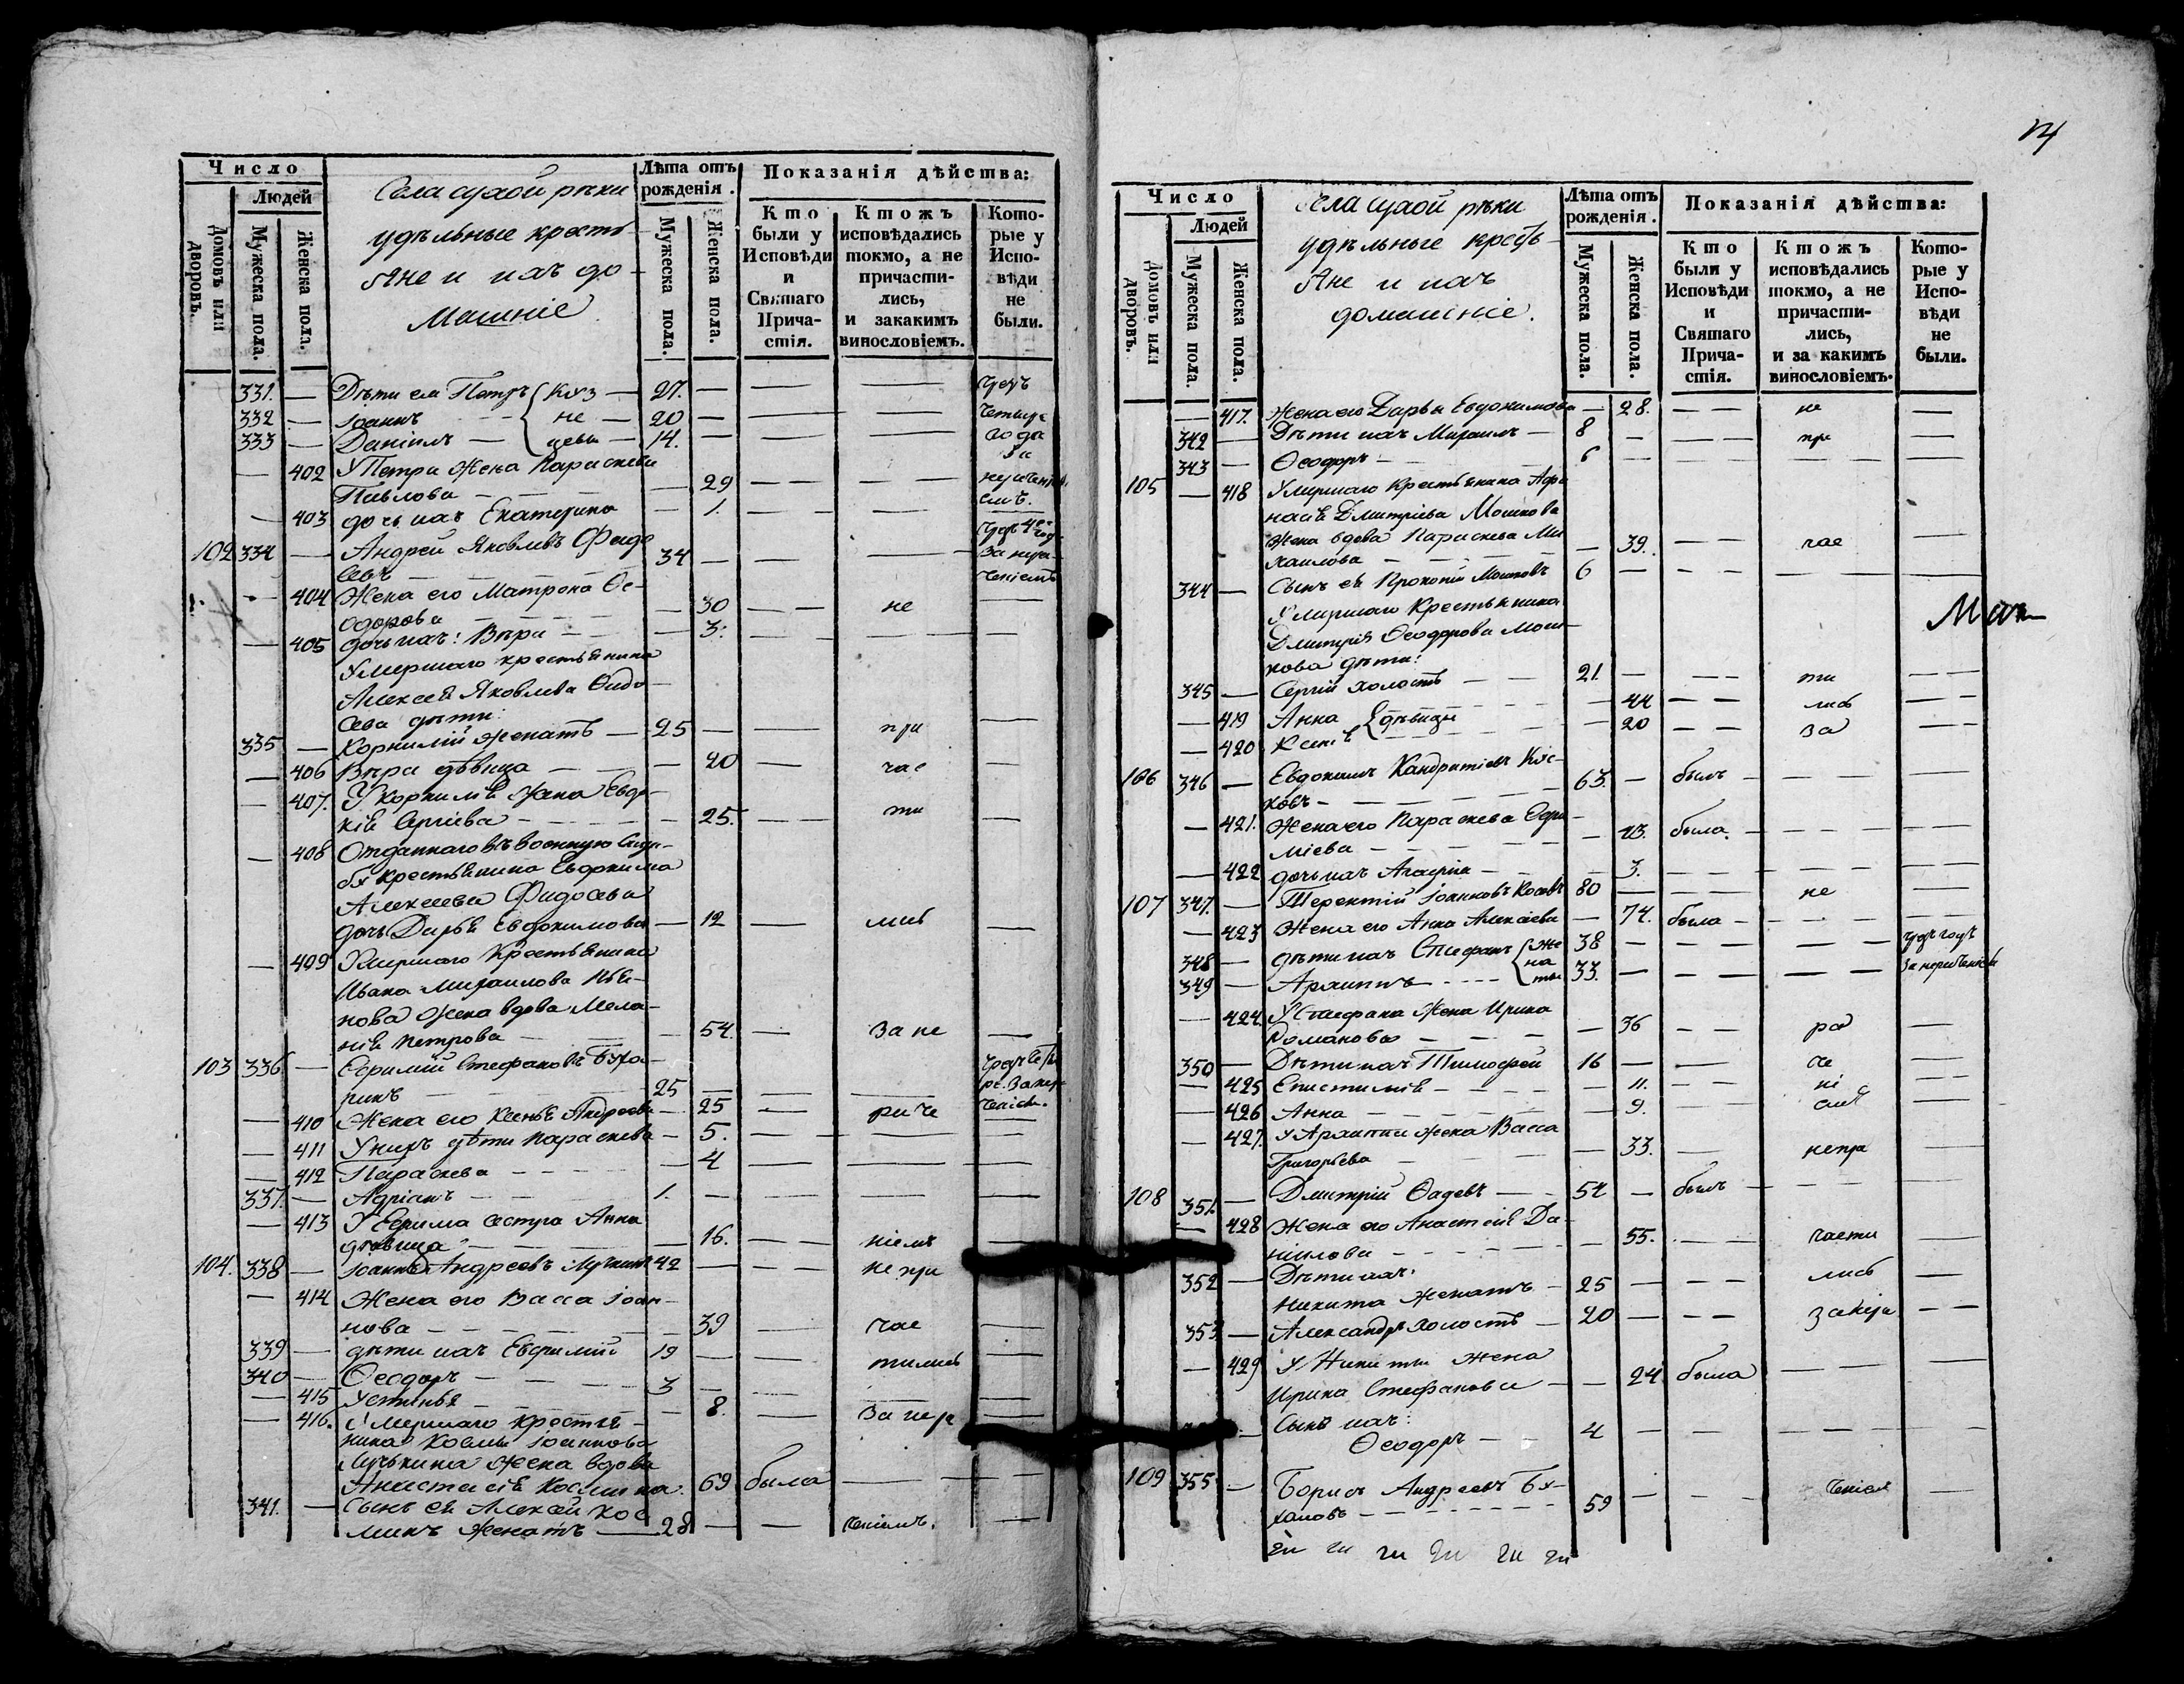 Число
Людей
Домовъ или дворовъ.
Мужеска пола.
Женска пола.
Села сухой рѣки
удѣльные кресть-
яне и ихъ до-
машніе
Лѣта отъ рожденія.
Мужеска пола.
Женска пола.
Показанія дѣйства:
Кто были у Исповѣди и Святаго Прича-стія.
Ктожъ исповѣдались токмо, а не причасти-лись, и закакимъ винословіемъ.
Кото-рые у Испо-вѣди не были.
331. — Дѣти ея Петръ — 27. — — —
332 — Іоаннъ — 20 — — —
333 — Даніилъ — 14. — — —
— 402 У Петра жена Параскева
Павлова — — 29 — — —
— 403 дочь ихъ Екатерина — 1. — — —
102 334 — Андрей Яковлевъ Фидо
севъ — 34 — — —
— 404 Жена его Матрона Ѳе-
одорова — 30 — — не —
— 405 дочь ихъ: Вѣра — 3. — — —
Умершаго крестьянина
Алексея Яковлева Фидо
сева дѣти:
335 — Корнилій женатъ — 25 — — при —
— 406 Вѣра дѣвица — 20 — час —
— 407. У Корнилія жена Евдо-
кія Сергіева — 25. — — ти —
— 408 Отданнаго въ военную служ-
бу крестьянина Евдокима
Алексеева Фидосева
дочь Дарья Евдокимова — 12 — лись —
— 409 Умершаго крестьянина
Ивана Михаилова
нова жена вдова Мела-
нія Петрова — 54. — за не —
103 336. — Ефимій Стефановъ Буха-
ринъ — 25 — — —
— 410 Жена его Ксенья Андреева — 25 — ра че —
— 411 У нихъ дѣти Параскева — 5. — — —
— 412 Параскева — 4 — — —
337. — Адріанъ — 1. — — — —
— 413 У Ефима сестра Анна
дѣвица — 16. — — ніемъ —
104. 338 — Іоаннъ Андреевъ Лучкинъ 42 — — не при
— 414 Жена его Васса Іоан-
нова — 39 — час —
339 — дѣти ихъ Евфимій 19 — — тились —
340 — Ѳеодоръ — 3 — — —
— 415 Устинья — 8. — за нера —
— 416. Умершаго крестья-
нина Космы Іоаннова
Лучкина жена вдова
Анастасія Космина. 69 была — —
341. — Сынъ ея Алексей Кос
минъ женатъ — 28 — — ченіемъ. —
Число
Людей
Домовъ или дворовъ.
Мужеска пола.
Женска пола.
Села сухой рѣки
удѣльные кресть-
яне и ихъ
домашніе.
Лѣта отъ рожденія.
Мужеска пола.
Женска пола.
Показанія дѣйства:
Кто были у Исповѣди и Святаго Прича-стія.
Ктожъ исповѣдались токмо, а не причасти-лись, и за какимъ винословіемъ.
Кото-рые у Испо-вѣди не были.
— 417. Жена его Дарья Евдокимова — 28. — — не —
342 — Дѣти ихъ Михаилъ — 8 — — — при —
343 — Ѳеодоръ — 6 — — —
105 — 418 Умершаго крестьянина Афа
насія Дмитріева Мошкова
жена вдова Параскева Ми
хаилова — 39. — — час —
344 — Сынъ ея Прокопій Мошковъ 6 — — — —
Умершаго крестьянина
Дмитрія Ѳеодорова Мош-
кова дѣти:
345 — Сергій холостъ — 21 — — — ти — —
— 419 Анна дѣвицы — 44 — — лись —
— 420 Ксенія — 20 — — за — —
106 346 — Евдокимъ Кандратіевъ Кос-
ковъ — 63. — былъ — — —
— 421. Жена его Параскева Ефи-
міева — была. — — —
— 422 дочь ихъ Агафія — 3. — — —
107 347. — Терентій Іоанновъ 80 — — — не —
— 423 Жена его Анна Алексеева — 74. была — — —
348 — дѣти ихъ Стефанъ 38 — — — чрезъ годъ
349 — Архиппъ — 33. — — —
— 424. У Стефана жена Ирина
Романова — 36 — — ра —
350 — Дѣти ихъ Тимофей 16 — — че —
— 425 Епистимія — 11. — — ні —
— 426 Анна — 9. — емъ —
— 427. У Архиппа жена Васса
Григорьева — 33. — непри —
108 351. — Дмитрій Ѳадевъ — 54 — былъ — —
— 428 Жена его Анастасія Да-
ніилова — 55. — — части —
352 — Дѣти ихъ:
Никита женатъ — 25 — — — лись —
353 — Александръ холостъ — 20 — — — за нера — —
— 429 У Никиты жена
Ирина Стефанова — 24 была — — —
Сынъ ихъ:
Ѳеодоръ — 4 — — — —
109 355 — Борисъ Андреевъ Бу-
хановъ — 59 — — — ченіем —